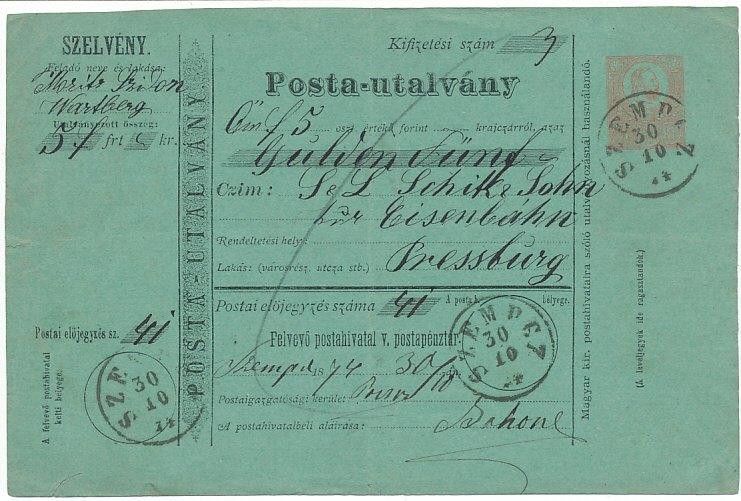 SZELVÉNY.
Feladó neve és lakása:
Moritz
Wartberg
Utalványozott összeg:
5 frt kr.
Postai előjegyzés sz. 41
A felvevő postahivatal
kelti bélyege.
SZE
30
10
74
POSTA-UTALVÁNY
Kifizetési szám 3
Posta-utalvány
5 oszt. értékű forint krajczárról, azaz
Gulden Fünf
Czim: S & L Schik & Sohn
zur Eisenbahn
Rendeltetési hely:
Lakás: (városrész, utcza stb.) Pressburg
Postai előjegyzés száma 41 A posta k. bélyege.
Felvevő postahivatal v. postapénztár.
Szempcz 1874 30/10
Postaigazgatósági kerület:
A postahivatalbeli aláirása:
SZEMPCZ
30
10
74
SZEMPCZ
30
10
74
Magyar kir. postahivatalra szóló utalványozásnál használandó.
(A levéljegyek ide ragasztandók.)